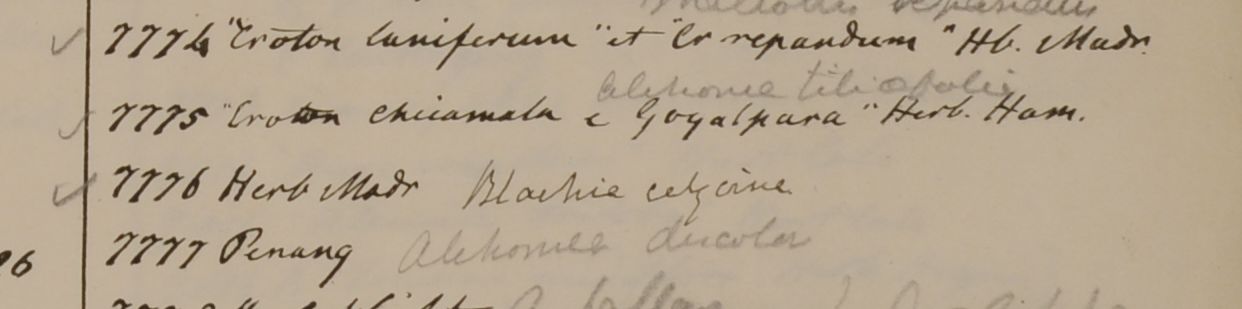 ✓ 7774 "Croton laniferum" et "Cr repandum" Hb. Madr.
Alchornea tiliaefolia
7775 "Croton chiiamala e Goyalpara" Herb. Ham.
✓ 7776 Herb Madr Blachia calycina
26 7777 Penang Alchornea discolor